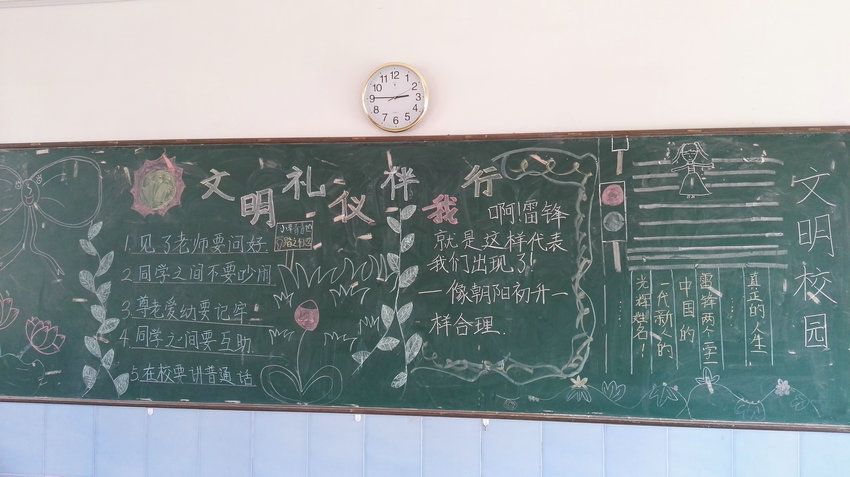 12
1
2
3
4
5
6
7
8
9
10
11
文明礼仪伴我行
1.见了老师要问好
2.同学之间不要吵闹
3.尊老爱幼要记牢
4.同学之间要互助
5.在校要讲普通话
啊!雷锋
就是这样代表
我们出现了!
一像朝阳初升一
样合理.
文明校园
真正的人生
……
雷锋两个字
中国的
一代新人的
光辉姓名!